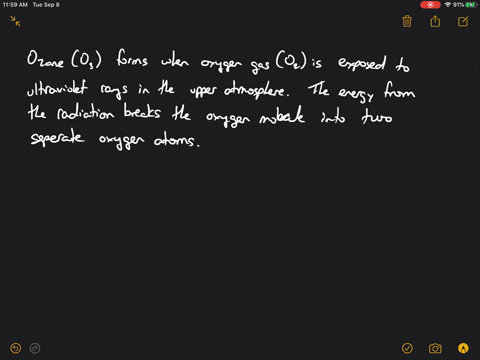 11:59 AM Tue Sep 8
91%
Ozone (O₃) forms when oxygen gas (O₂) is exposed to
ultraviolet rays in the upper atmosphere. The energy from
the radiation breaks the oxygen molecule into two
seperate oxygen atoms.